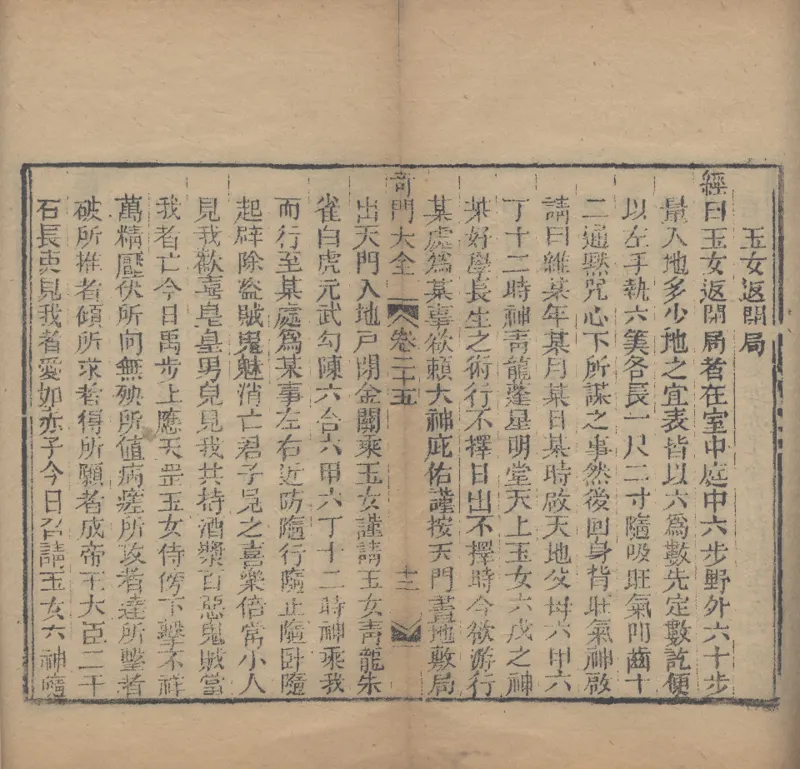 玉女返閉局
經曰玉女返閉局者在室中庭中六步野外六十步
量入地多少地之宜表皆以六爲數先定數訖便
以左手執六筭各長一尺二寸隨吸旺氣叩齒十
二通默咒心下所謀之事然後回身背旺氣神啟
請曰維某年某月某日某時啟天地父母六甲六
丁十二時神靑龍蓬星明堂天上玉女六戊之神
某好學長生之術行不擇日出不擇時今欲游行
某處爲某事欲賴大神庇佑謹按天門畫地敷局
奇門大全 卷二十五 十二
出天門入地戶閉金關乘玉女謹請玉女靑龍朱
雀白虎元武勾陳六合六甲六丁十二時神乘我
而行至某處爲某事左右近防隨行隨止隨臥隨
起辟除盜賊鬼魅消亡君子見之喜樂倍常小人
見我歡喜皂皇男兒見我共持酒漿百惡鬼賊當
我者亡今日禹步上應天罡玉女侍傍下擊不祥
萬精壓伏所向無殃所値病瘥所攻者達所擊者
破所推者傾所求者得所願者成帝王大臣二千
石長吏見我者愛如赤子今日召請玉女六神隨